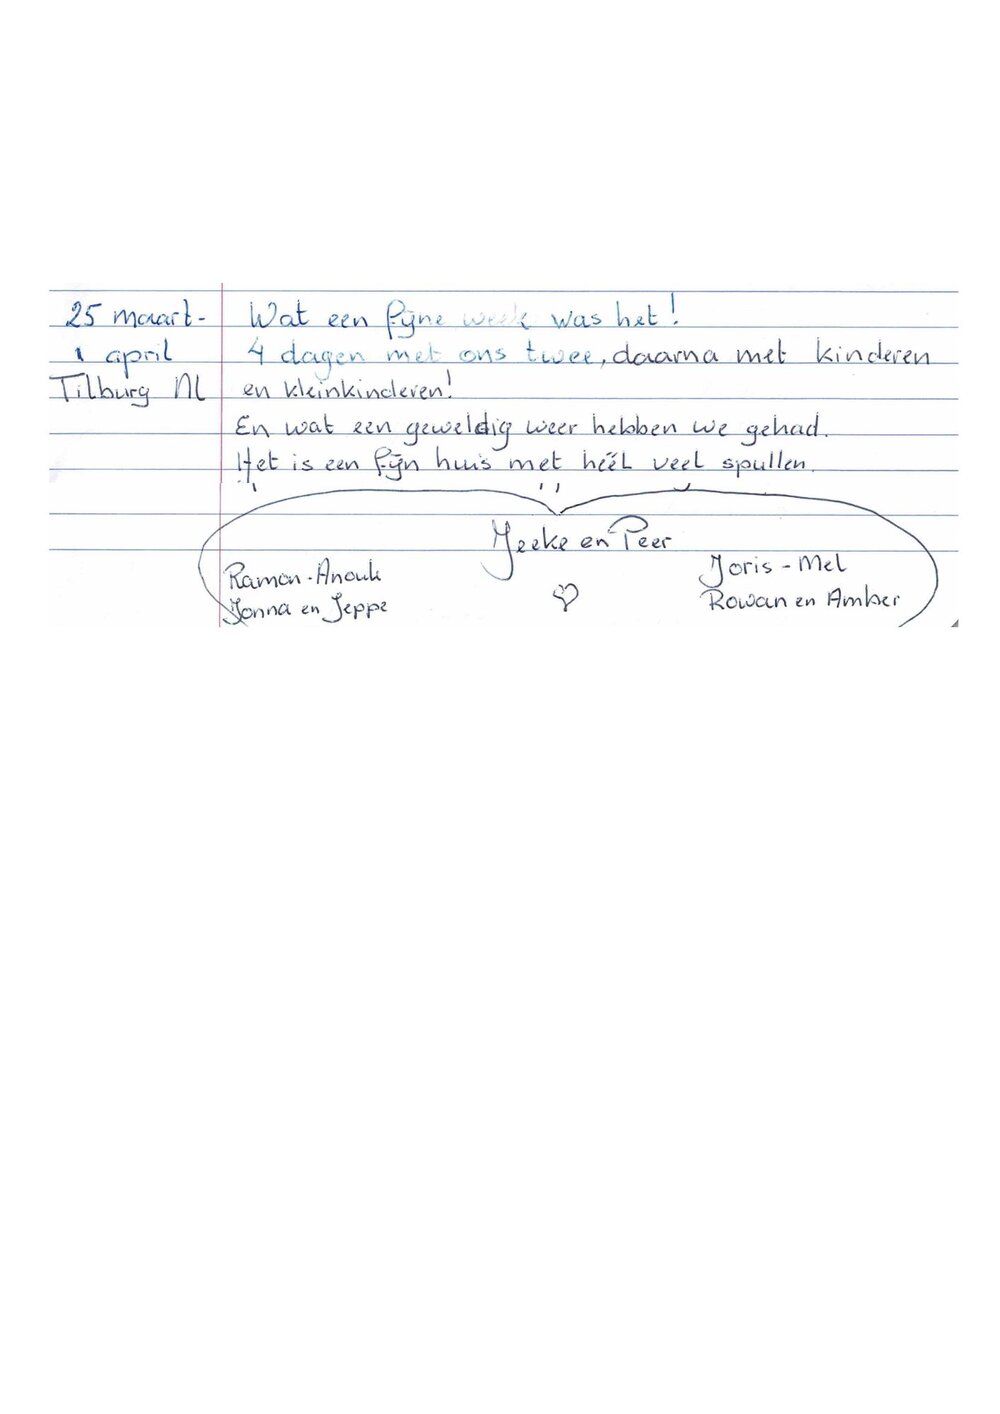 25 maart - Wat een fijne week was het!
1 april 4 dagen met ons twee, daarna met kinderen
Tilburg Nl en kleinkinderen!
En wat een geweldig weer hebben we gehad.
Het is een fijn huis met héél veel spullen.
Jeeke en Peer
Ramon - Anouk Joris - Mel
Jonna en Jeppe Rowan en Amber